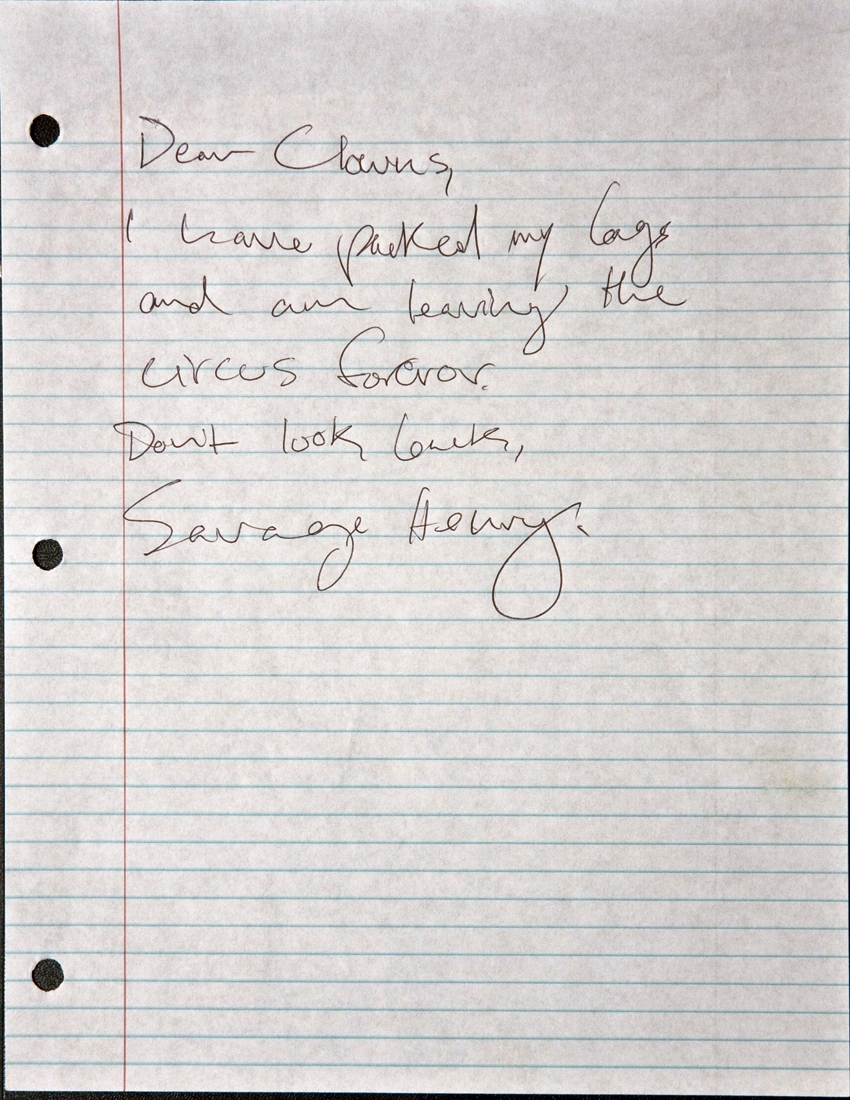 Dear Clowns,
I have packed my bags
and am leaving the
circus forever.
Don't look back,
Savage Henry.